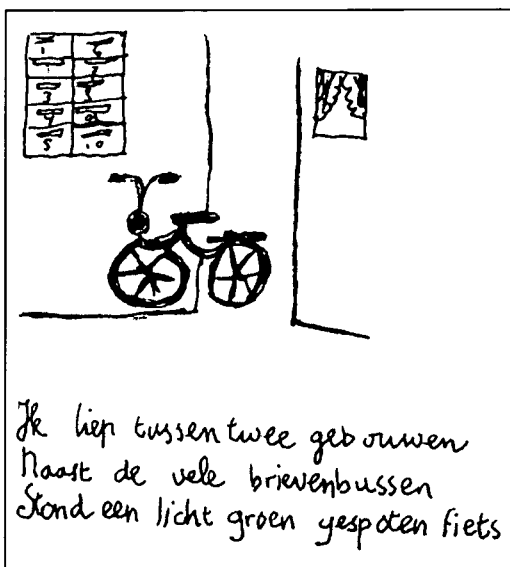 Ik liep tussen twee gebouwen
Naast de vele brievenbussen
Stond een licht groen gespoten fiets